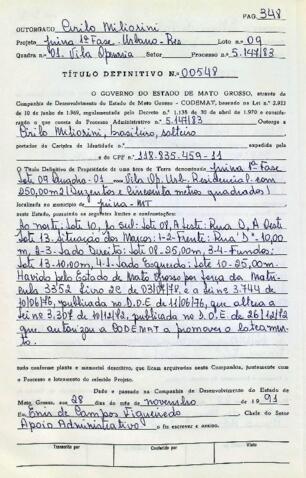 PAG. 348
OUTORGADO Cirilo Miliosini
Projeto Juina 1ª Fase - Urbano - Res Lote no 09
Quadra n.o 01. Vila Operaria Setor Processo n.o 5.147/83
TÍTULO DEFINITIVO N.o 00548
O GOVERNO DO ESTADO DE MATO GROSSO, através da
Companhia de Desenvolvimento do Estado de Mato Grosso - CODEMAT, baseado na Lei n.o 2.923
de 10 de junho de 1969, regulamentada pelo Decreto n.o 1.138 de 30 de abril de 1970 e consideran-
do o que consta do Processo Administrativo n.o 5.147/83 Outorga a
Cirilo Miliosini, brasileiro, solteiro
portador da Carteira de Identidade n.o expedida pela
e do CPF n.o 118.835.459-11
O Título Definitivo de Propriedade de uma área de Terra denominada Juina 1ª Fase
Lote 09 Quadra-01 Vila Op. Urb-Residencial com
250,00m2 (Duzentos e Cincoenta metros quadrados)
localizado no Juina-MT
neste Estado, possuindo as seguintes limites e confrontações:
Ao norte: Lote 10, ao sul: Lote 08, A Leste: Rua D, A Oeste
Lote 13. Situação dos Marcos: 1-2-Frente: Rua D - 10,00
m, 2-3-Lado Direito: Lote 08-25,00m, 3-4-Fundos:
Lote 13-10,00m, 4-1-Lado Esquerdo: Lote 10-25,00m.
Havido pelo Estado de Mato Grosso por força da Matri-
cula 3352 livro 2C de 03/07/78 e a lei nº 3.744 de
10/06/76, publicada no D.O.E de 11/06/76, que altera a
lei 3.307 de 10/12/72, publicada no D.O.E. de 26/12/72
que autorizou a CODEMAT a promover o loteamen-
to.
tudo conforme planta e memorial descritivo, que ficam arquivados nesta Companhia, juntamente com
o Processo e loteamento do referido Projeto.
Dado e passado na Companhia de Desenvolvimento do Estado de
Mato Grosso, aos 28 dias do mês de novembro de 1991
Eu, Enir de Campos Figueiredo Chefe do Setor
Apoio Administrativo o fiz escrever e assino.
Transcrito por Conferido por Visto